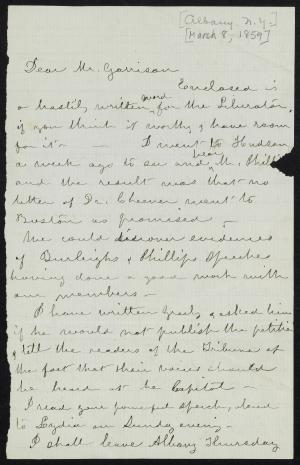 [Albany, N.Y.]
[March 8, 1859]
Dear Mr. Garrison
Enclosed is
a hastily written word for the Liberator,
if you think it worthy & have room
for it — I went to Hudson
a week ago to see and hear Mr. Phillips
and the result was that no
letter of Dr. Cheever went to
Boston as promised —
We could discover evidences
of Burleigh's & Phillips Speeches
having done a good work with
our members —
I have written Greely & asked him
if he would not publish the petition
& tell the readers of the Tribune of
the fact that their voices should
be heard at the Capitol —
I read your powerful speech, aloud
to Lydia on Sunday evening —
I shall leave Albany Thursday